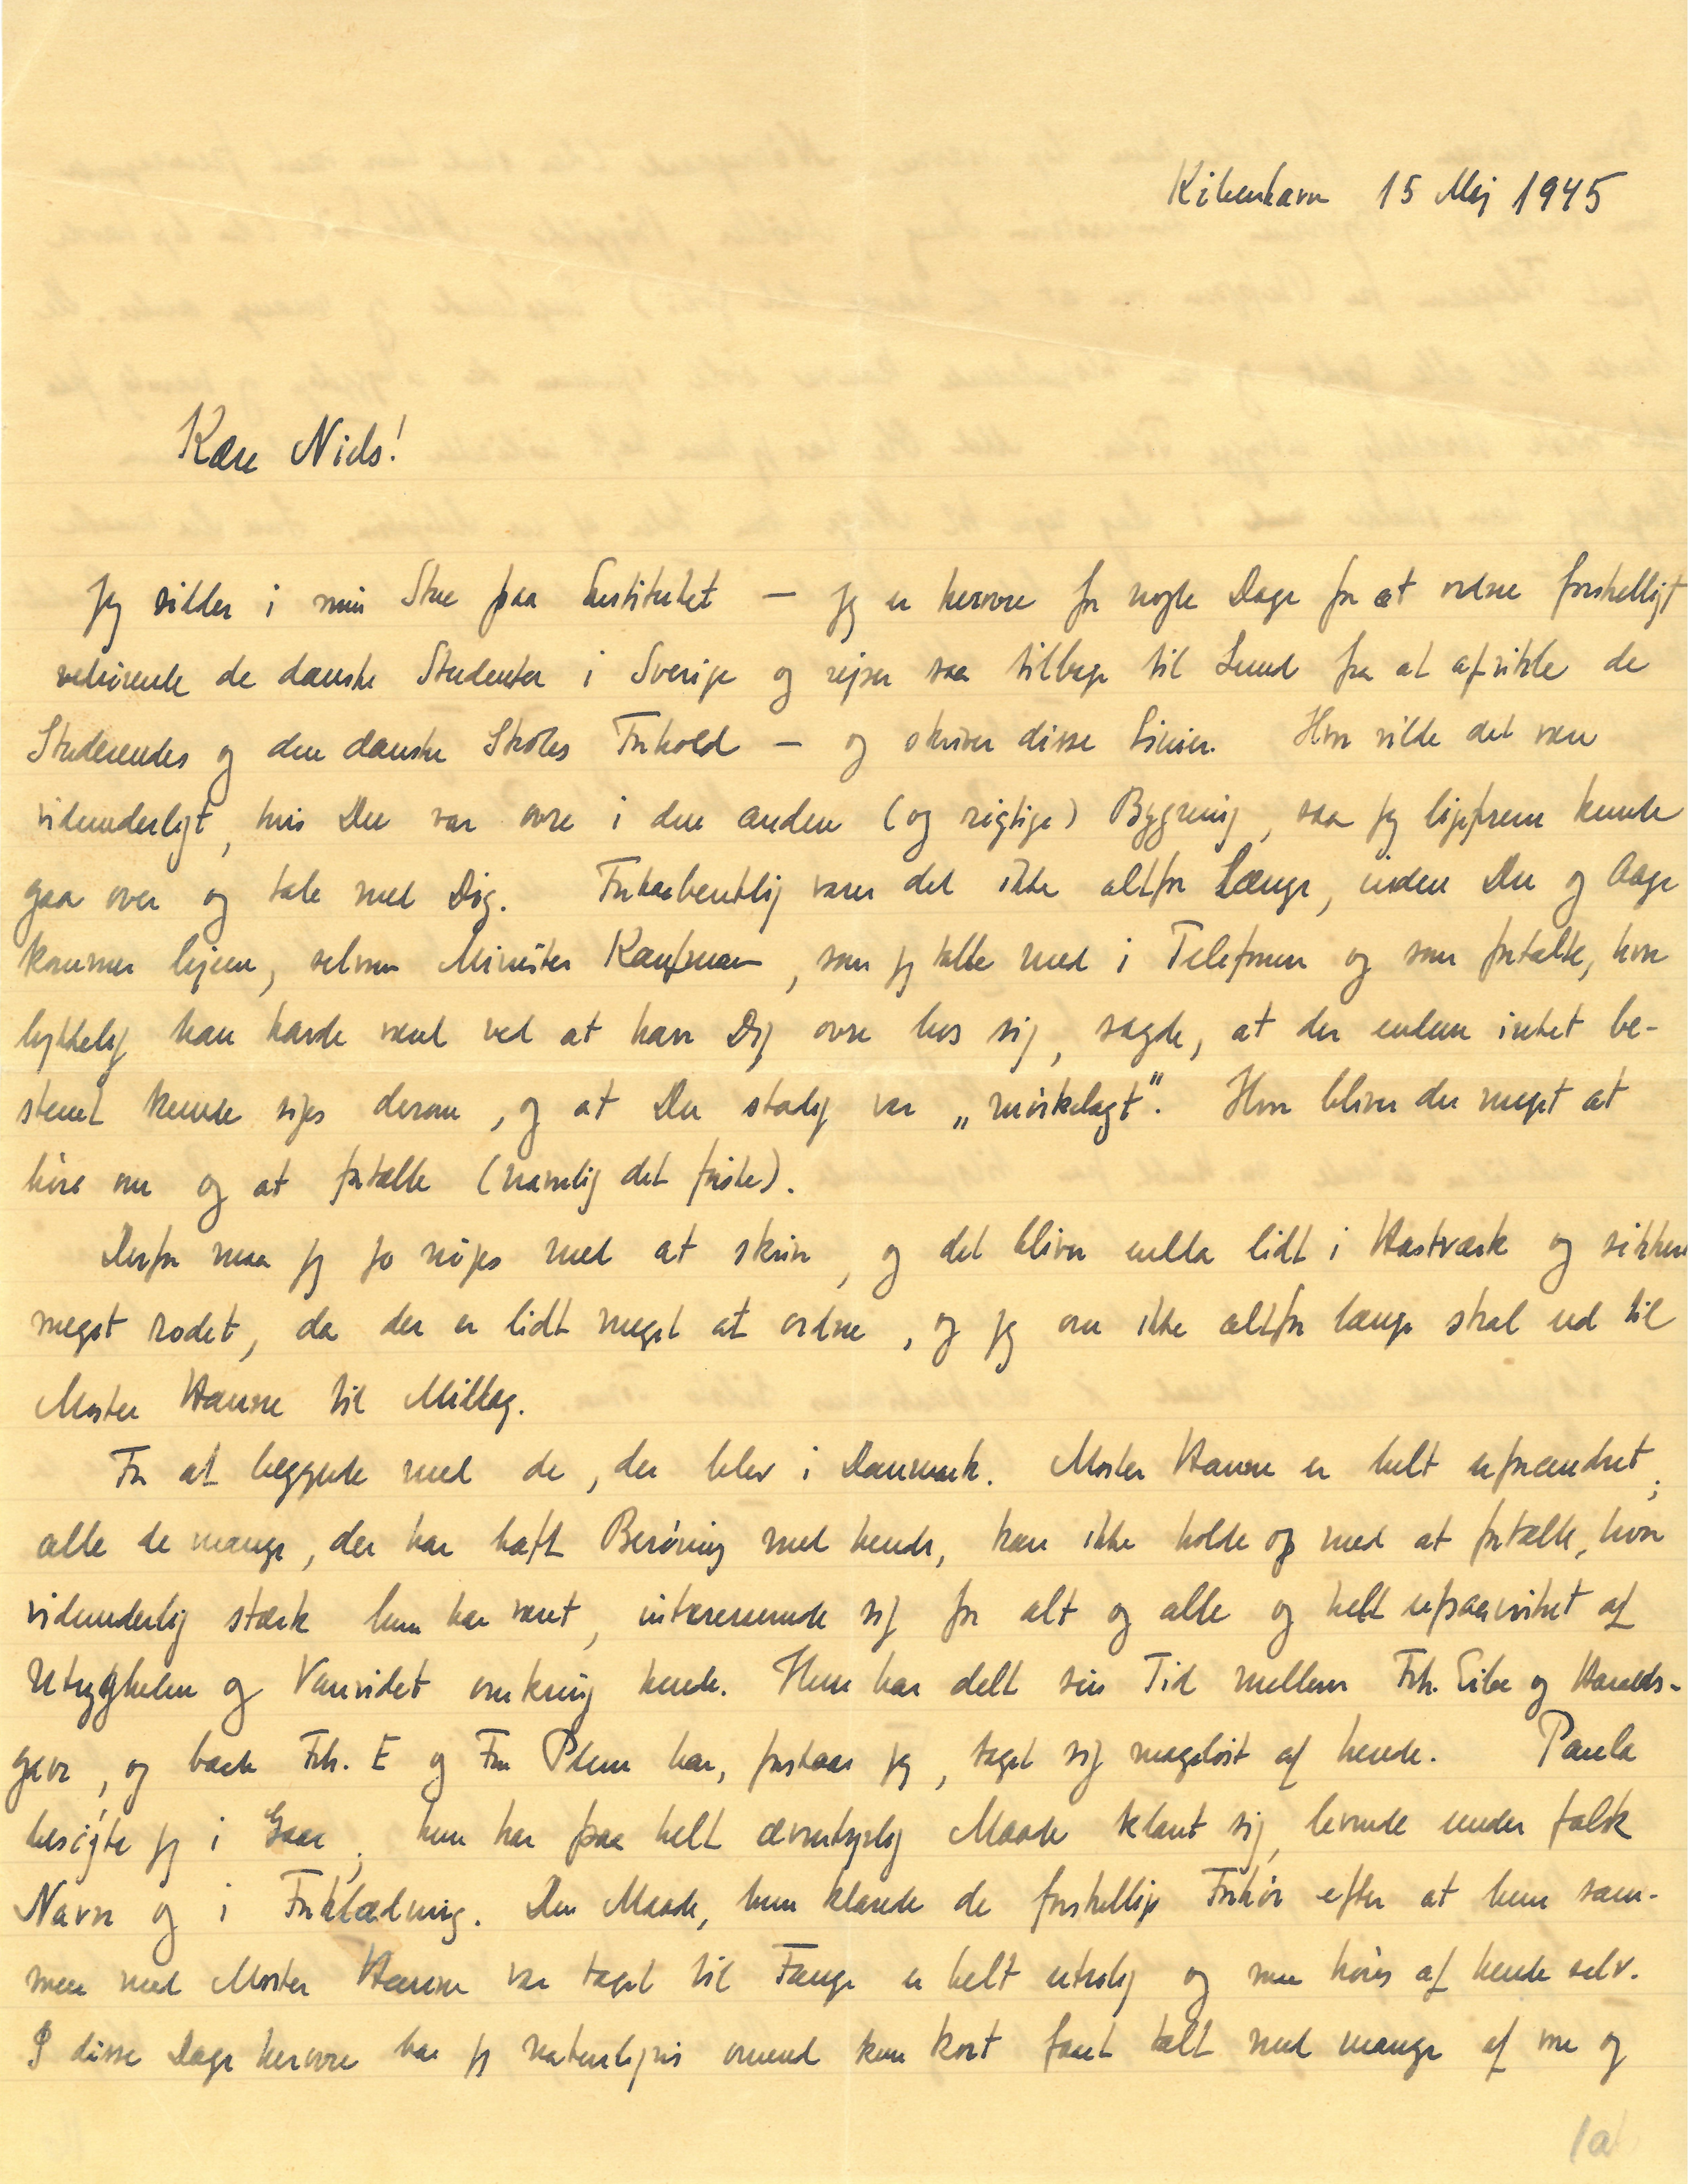 København 15 Maj 1945
Kære Niels!
Jeg sidder i min Stue paa Institutet — jeg er herovre for nogle Dage for at ordne forskelligt
vedrørende de danske Studenter i Sverige og rejser saa tilbage til Lund for at afvikle de
Studerendes og den danske Skoles Forhold — og skriver disse Linier. Hvor vilde det være
vidunderligt, hvis Du var ovre i den anden (og rigtige) Bygning, saa jeg ligefrem kunde
gaa over og tale med Dig. Forhaabentlig varer det ikke altfor Længe, inden Du og Aage
kommer hjem, selvom Minister Kaufmann, som jeg talte med i Telefonen og som fortalte, hvor
lykkelig han havde været ved at have Dig ovre hos sig, sagde, at der endnu intet be-
stemt kunde siges derom, og at Du stadig var „mørkelagt". Hvor bliver der meget at
høre om og at fortælle (navnlig det første).
Derfor maa jeg jo nøjes med at skrive, og det bliver endda lidt i Hastværk og sikkert
meget rodet, da der er lidt meget at ordne, og jeg om ikke altfor længe skal ud til
Moster Hanne til Middag.
For at begynde med de, der blev i Danmark. Moster Hanne er helt uforandret;
alle de mange, der har haft Berøring med hende, kan ikke holde op med at fortælle, hvor
vidunderlig stærk hun har været, interesserende sig for alt og alle og helt upaavirket af
Utrygheden og Vanvidet omkring hende. Hun har delt sin Tid mellem Frk. Eibe og Haralds-
gave, og baade Frk. E og Fru Plum har, forstaar jeg, taget sig mageløst af hende. Paula
besøgte jeg i Gaar; hun har paa helt æventyrlig Maade klaret sig, levende under falsk
Navn og i Forklædning. Den Maade, hun klarede de forskellige Forhør efter at hun sam-
men med Moster Hanne var taget til Fange er helt utrolig og maa høres af hende selv.
I disse Dage herovre har jeg naturligvis omend kun kort faaet talt med mange af vore og
1a